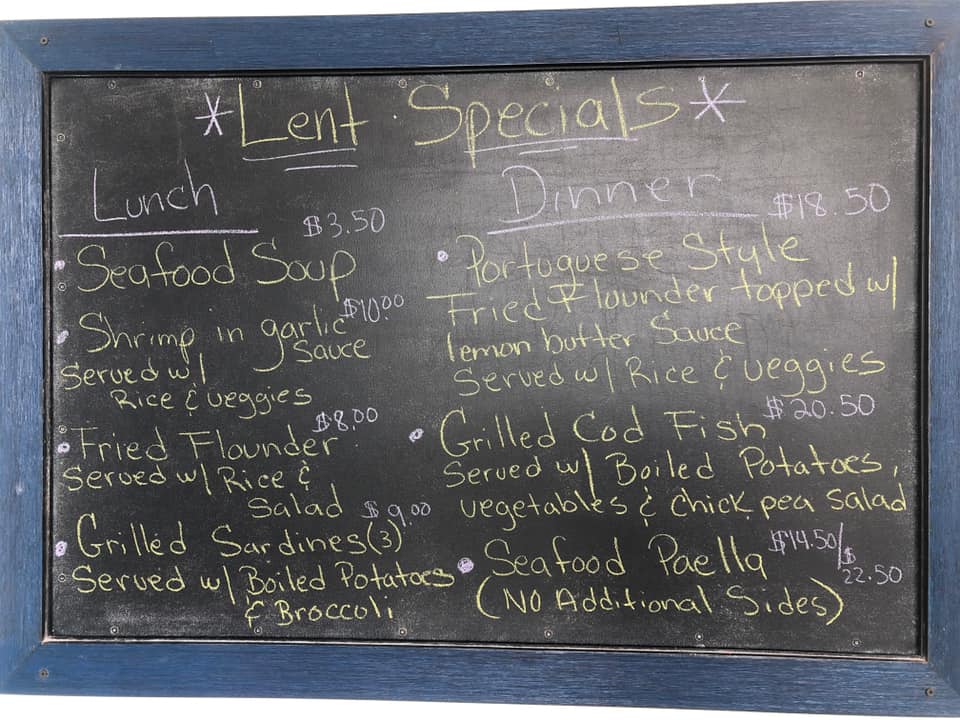 *Lent Specials*
Lunch
$3.50
• Seafood Soup
$10.00
• Shrimp in garlic
Sauce
Served w/
Rice & veggies
$8.00
• Fried Flounder
Served w/ Rice &
Salad
$9.00
• Grilled Sardines(3)
Served w/ Boiled Potatoes
& Broccoli
Dinner
$18.50
• Portuguese Style
Fried Flounder topped w/
lemon butter Sauce
Served w/ Rice & veggies
$20.50
• Grilled Cod Fish
Served w/ Boiled Potatoes,
vegetables & Chick pea Salad
• Seafood Paella $14.50/
$
22.50
(NO Additional Sides)